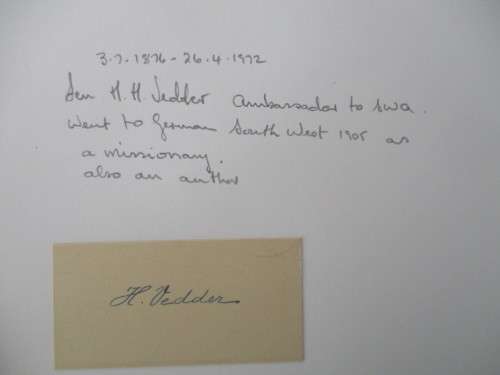 3.7.1876 - 26.4.1972
Sen H.H. Vedder Ambassador to SWA.
Went to German South West 1905 as
a missionary.
also an author
H. Vedder